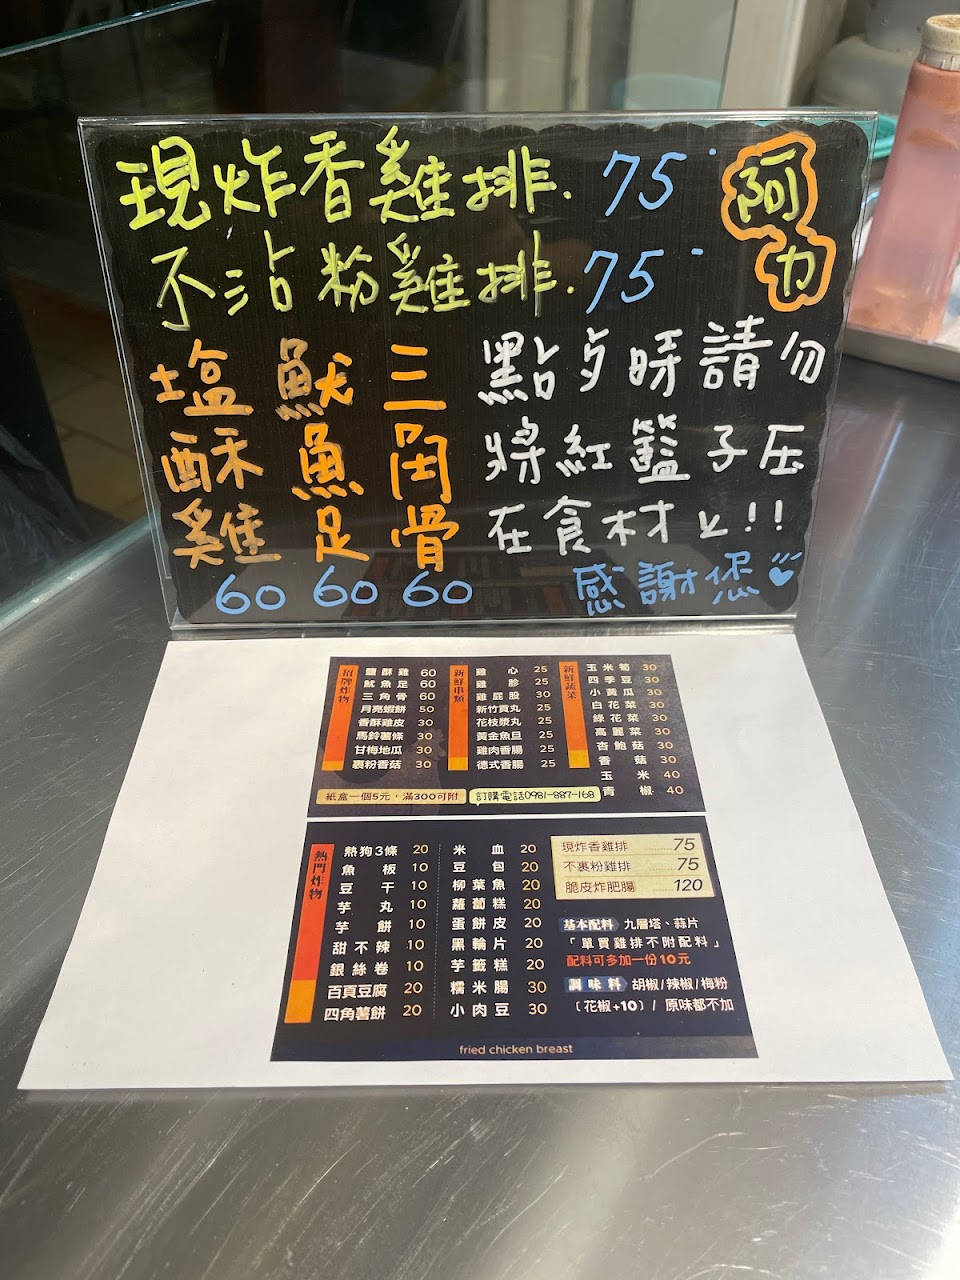 現炸香雞排.75
不沾粉雞排.75
阿力
塩酥雞 60
魷魚足 60
三角骨 60
點歺時請勿
將紅籃子压
在食材上!!
感謝您
招牌炸物
鹽酥雞 60
魷魚足 60
三角骨 60
月亮蝦餅 50
香酥雞皮 30
馬鈴薯條 30
甘梅地瓜 30
裹粉香菇 30
新鮮串類
雞心 25
雞胗 25
雞屁股 30
新竹貢丸 25
花枝漿丸 25
黃金魚旦 25
雞肉香腸 25
德式香腸 25
新鮮蔬菜
玉米筍 30
四季豆 30
小黃瓜 30
白花菜 30
綠花菜 30
高麗菜 30
杏鮑菇 30
香菇 30
玉米 40
青椒 40
紙盒一個5元，滿300可附
訂購電話0981-887-168
熱門炸物
熱狗3條 20
魚板 10
豆干 10
芋丸 10
芋餅 10
甜不辣 10
銀絲卷 10
百頁豆腐 20
四角薯餅 20
米血 20
豆包 20
柳葉魚 20
蘿蔔糕 20
蛋餅皮 20
黑輪片 20
芋籤糕 20
糯米腸 30
小肉豆 30
現炸香雞排 75
不裹粉雞排 75
脆皮炸肥腸 120
基本配料 九層塔、蒜片
「單買雞排不附配料」
配料可多加一份10元
調味料 胡椒/辣椒/梅粉
〔花椒+10〕/ 原味都不加
fried chicken breast